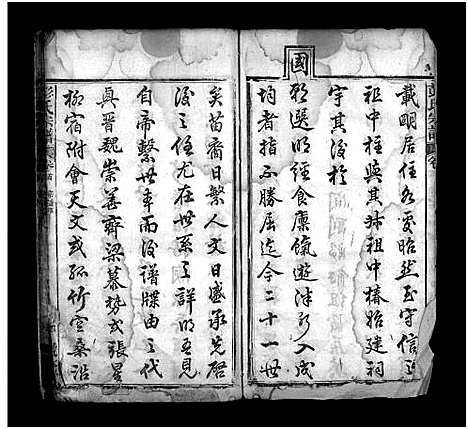 彭氏宗譜
載明居住各處昭然至守信
祖中柱與其叔祖中椿始建祠
宇其後於
國
朝選明經食廩餼遊泮入成
均者指不勝屈迄今二十一世
矣苗裔日繁人文日盛承先啟
後之任尤在世系之詳明吾見
自帝繫世本而後譜牒由之代
興晉魏崇善齊梁慕勢或張星
柳宿附會天文或孤竹空桑沿
彭氏宗譜